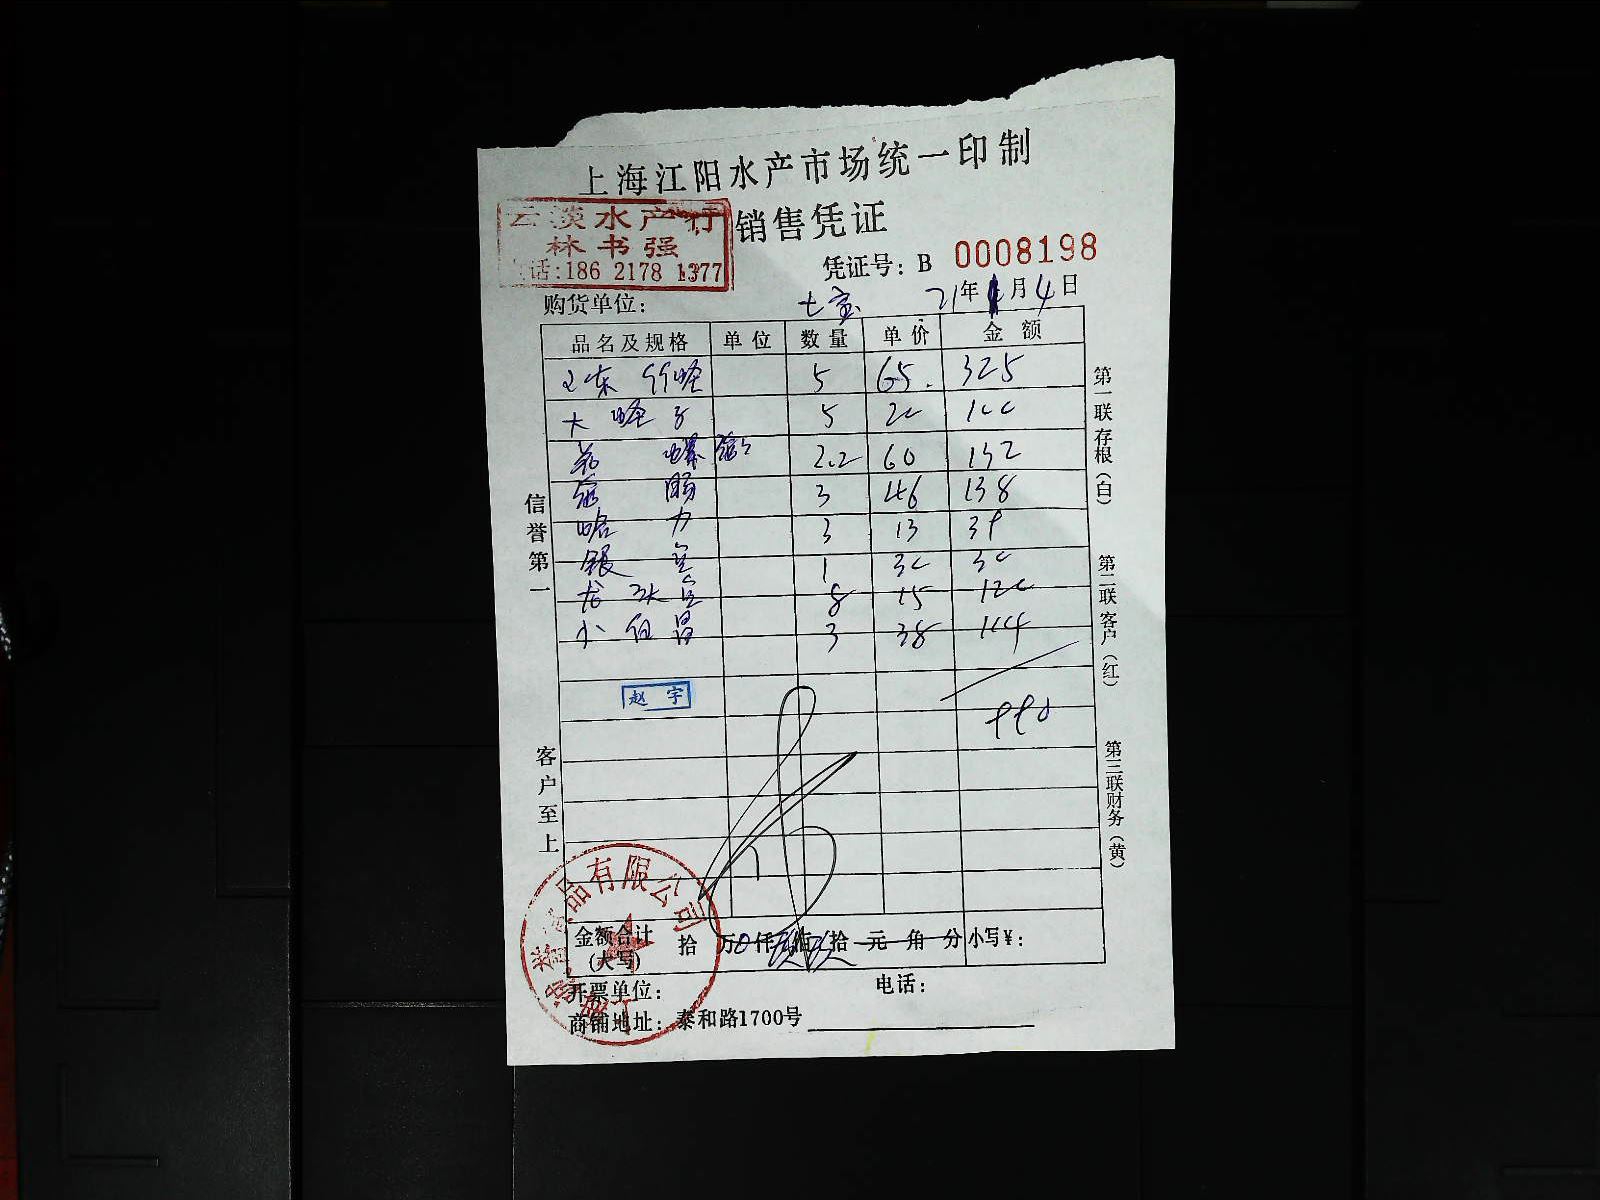 上海江阳水产市场统一印制
云淡水产行
林书强
话:186 2178 1377
销售凭证
凭证号: B 0008198
购货单位: 七宝 21年 月4日
品名及规格 单位 数量 单价 金额
5 65. 325
大蛏子 5 20 100
螺 2.2 60 132
3 46 138
3 13 39
1 30 30
8 15 120
小 3 38 114
赵宇
990
信誉第一
客户至上
第一联存根(白)
第二联客户(红)
第三联财务(黄)
食品有限公司
金额合计(大写) 拾 万 仟 佰 拾 元 角 分 小写¥:
开票单位: 电话:
商铺地址: 泰和路1700号